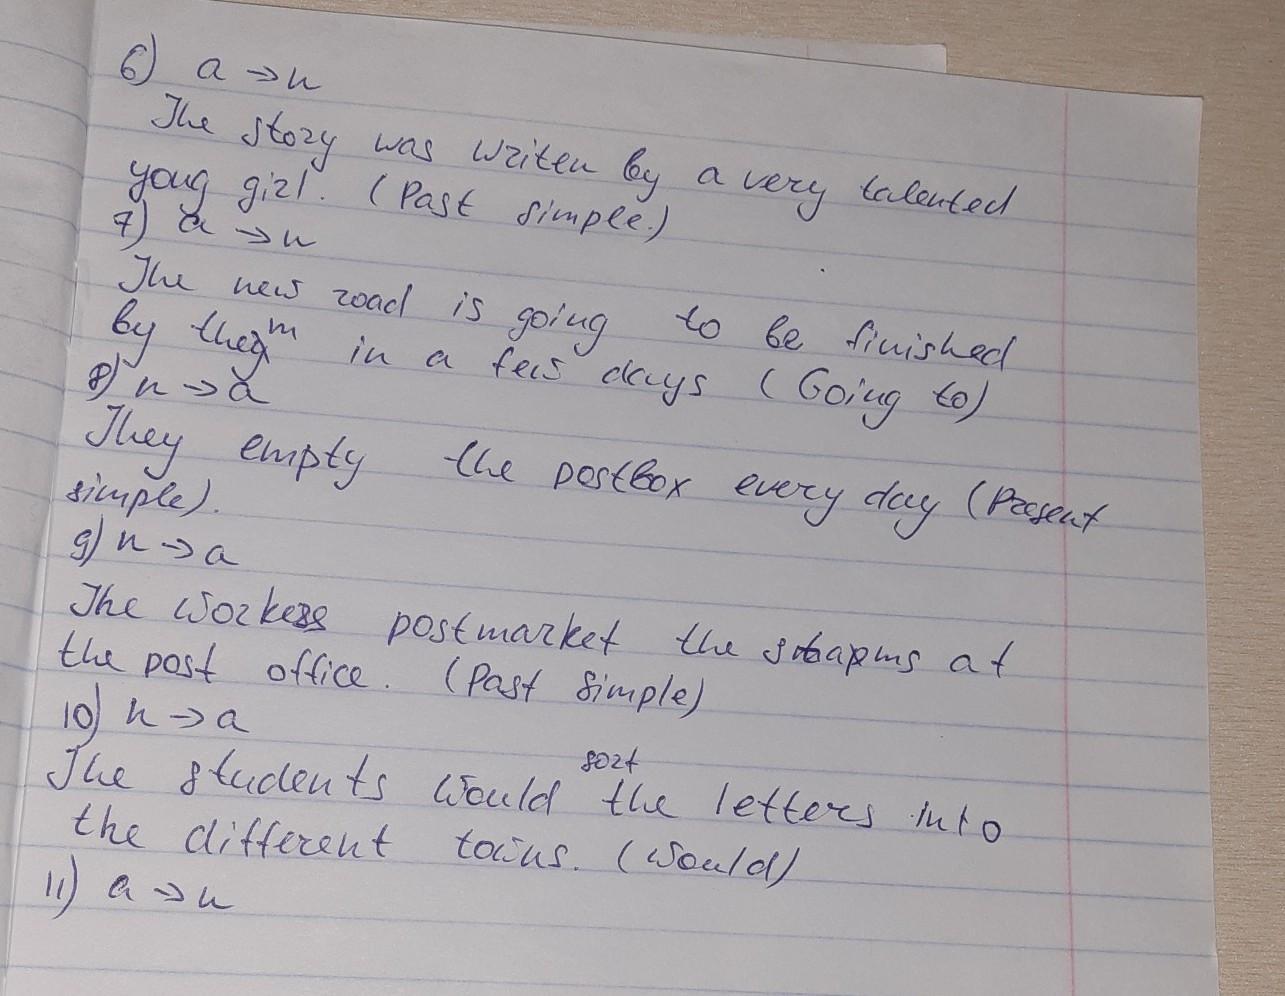 6) a → п
The story was writen by a very talented
youg girl. (Past simple.)
7) a → п
The new road is going to be finished
by them in a few days (Going to)
8) п → a
They empty the postbox every day (Present
simple).
9) п → a
The workers postmarket the stapms at
the post office. (Past Simple)
10) п → a
The students would sort the letters into
the different towns. (Would)
11) a → п